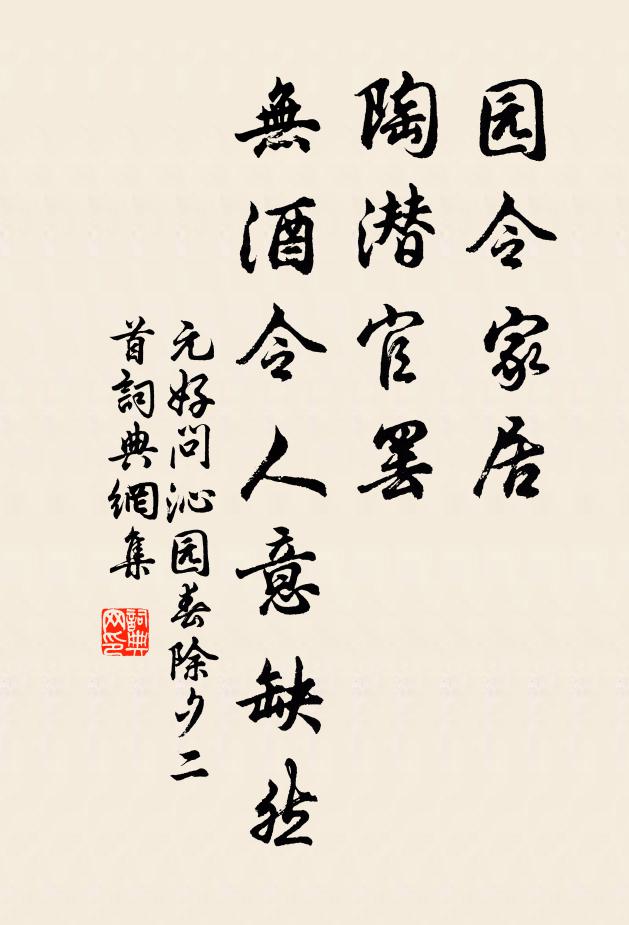 园令家居
陶潜官罢
無酒令人意缺然
元好问沁园春除夕二
首詞典網集
詞典
网印